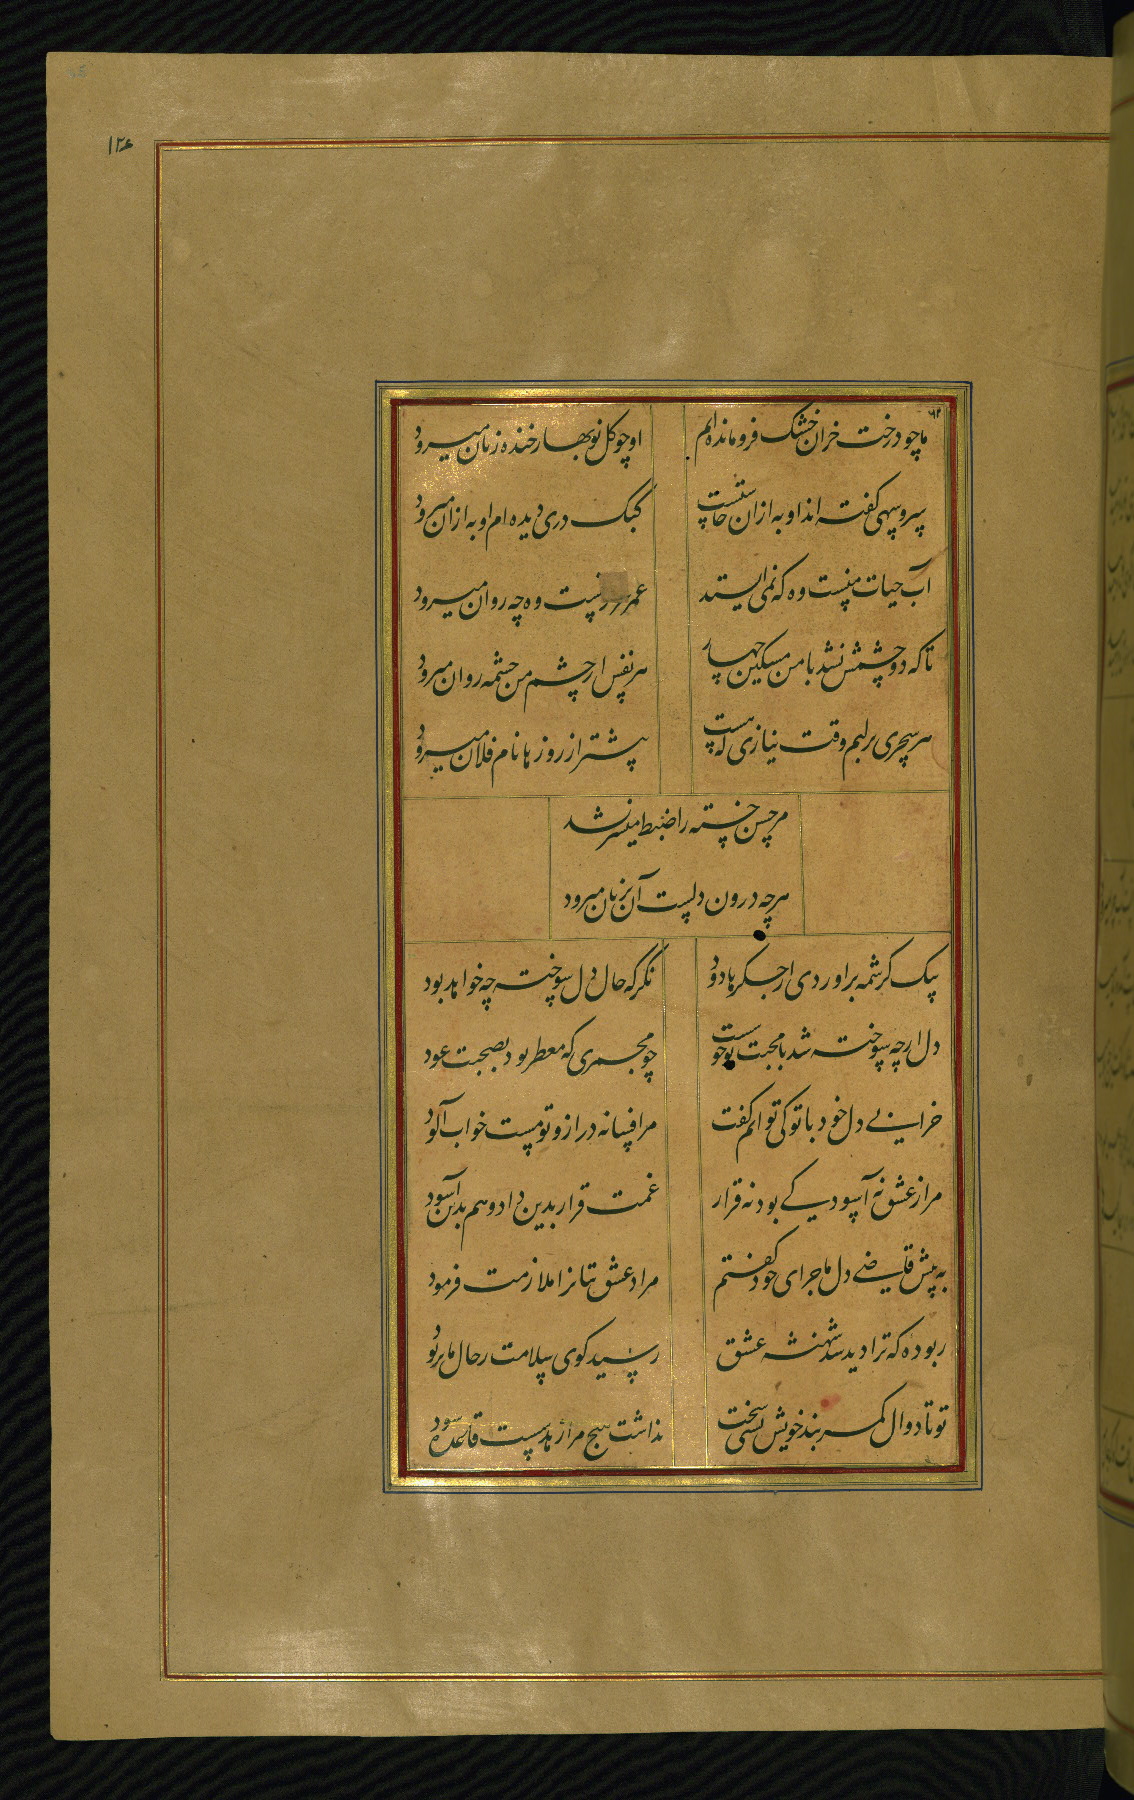 ۱۲۶
ما چو درخت خزان خشک فرو مانده ایم او چو کل نوبهار خنده زنان میرود
سرو سهی کفته اند او به از ان خاستست کبک دری دیده ام او به ازان میرود
آب حیات منست وه که نمی ایستد عمر نیست وه چه روان میرود
تا که دو چشمش نشد با من مسکین چهار هر نفس از چشم من چشمه روان میرود
هر سحری بر لبم وقت نیازی که هست پیشتر از روزها نام فلان میرود
مر حسن خسته را ضبط میسر نشد
هرچه درون دلست آن بزبان میرود
بیک کرشمه براوردی از جکرها دود نکر که حال دل سوخته چه خواهد بود
دل ارچه سوخته شد با محبت تو خوست چو مجمری که معطر بود بصحبت عود
خرابی دل خود با تو کی توانم کفت مرا فسانه دراز و تو مست خواب آلود
مرا ز عشق نه آسودیی بود نه قرار غمت قرار بدین داد و هم بدین آسود
به پیش قاضی دل ماجرای خود کفتم مرا د عشق بتانرا ملازمت فرمود
ربوده که ترا دید شد شهنشه عشق رسید کوی سلامت ز حال ما بربود
تو تا دوال کمر بند خویش بستی سخت نداشت هیچ مرا زهد سست قاعده سود